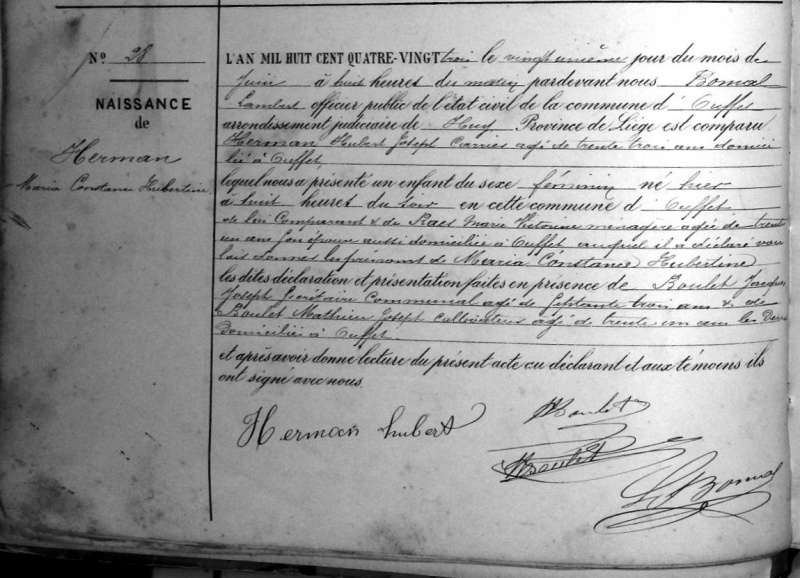 N° 28
NAISSANCE
de
Herman
Maria Constance Hubertine
L'AN MIL HUIT CENT QUATRE-VINGT trois le vingt unième jour du mois de
Juin à huit heures du matin pardevant nous Bomal
Lambert officier public de l'état civil de la commune d' Ouffet
arrondissement judiciaire de Huy Province de Liége est comparu
Herman Hubert Joseph Carrier agé de trente trois ans domici
lié à Ouffet
lequel nous a présenté un enfant du sexe féminin né hier
à huit heures du soir en cette commune d' Ouffet
de lui Comparant & de Raes Marie Victorine ménagère agée de trente
un ans son épouse aussi domiciliée à Ouffet auquel il a déclaré vou
loir donner les prénoms de Maria Constance Hubertine
les dites déclaration et présentation faites en présence de Boulet Jacques
Joseph Secrétaire Communal agé de septante trois ans & de
Boulet Mathieu Joseph cultivateur agé de trente un ans les Deux
Domiciliés à Ouffet
et après avoir donné lecture du présent acte au déclarant et aux témoins ils
ont signé avec nous.
Herman hubert
Boulet
Boulet
Bomal